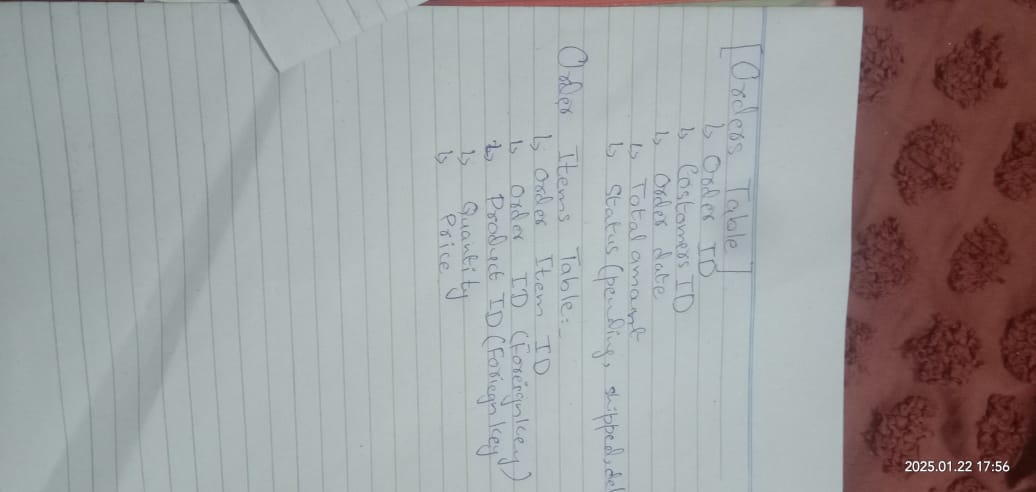 [Orders Table]
↳ Order ID
↳ Costomers ID
↳ Order date
↳ Total amant
↳ Status (pending, shipped, del
Order Items Table:-
↳ Order Item ID
↳ Order ID (Foreign key)
↳ Product ID (Foriegn key)
↳ Quantity
↳ Price
2025.01.22 17:56